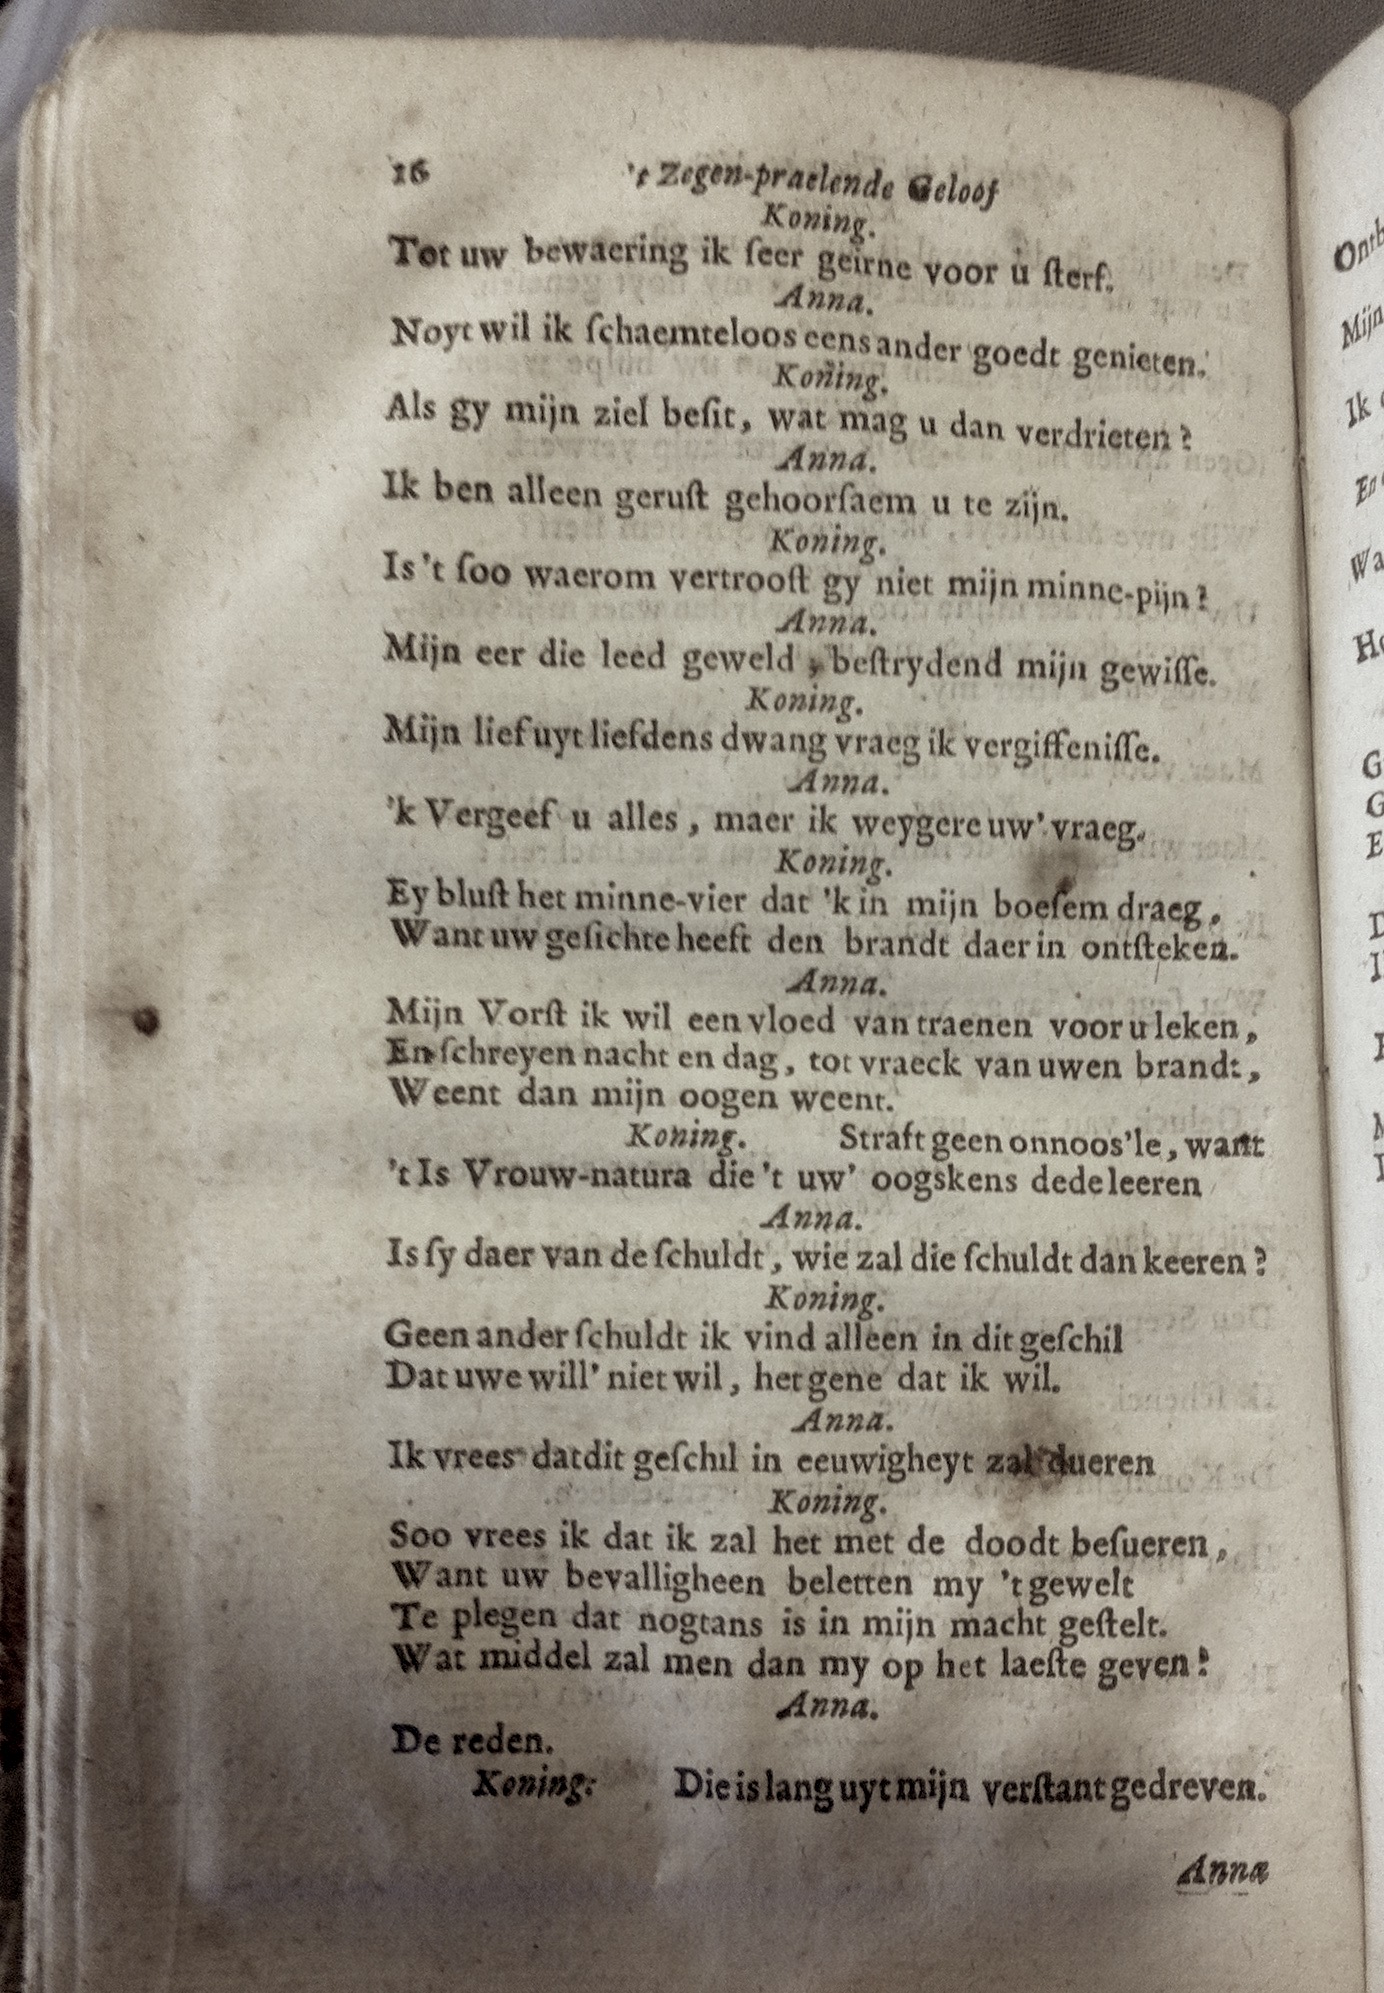 16 't Zegen-praelende Geloof
Koning.
Tot uw bewaering ik ſeer geirne voor u ſterf.
Anna.
Noyt wil ik ſchaemteloos eens ander goedt genieten.
Koning.
Als gy mijn ziel beſit, wat mag u dan verdrieten?
Anna.
Ik ben alleen geruſt gehoorſaem u te zijn.
Koning.
Is 't ſoo waerom vertrooſt gy niet mijn minne-pijn?
Anna.
Mijn eer die leed geweld, beſtrydend mijn gewiſſe.
Koning.
Mijn lief uyt liefdens dwang vraeg ik vergiffeniſſe.
Anna.
'k Vergeef u alles, maer ik weygere uw' vraeg.
Koning.
Ey bluſt het minne-vier dat 'k in mijn boeſem draeg,
Want uw geſichte heeft den brandt daer in ontſteken.
Anna.
Mijn Vorſt ik wil een vloed van traenen voor u leken,
En ſchreyen nacht en dag, tot vraeck van uwen brandt,
Weent dan mijn oogen weent.
Koning. Straft geen onnoos'le, want
't Is Vrouw-natura die 't uw' oogskens dede leeren
Anna.
Is ſy daer van de ſchuldt, wie zal die ſchuldt dan keeren?
Koning.
Geen ander ſchuldt ik vind alleen in dit geſchil
Dat uwe will' niet wil, het gene dat ik wil.
Anna.
Ik vrees dat dit geſchil in eeuwigheyt zal dueren
Koning.
Soo vrees ik dat ik zal het met de doodt beſueren,
Want uw bevalligheen beletten my 't gewelt
Te plegen dat nogtans is in mijn macht geſtelt.
Wat middel zal men dan my op het laeſte geven?
Anna.
De reden.
Koning. Die is lang uyt mijn verſtant gedreven.
Anna
Ontb
Mijn
Ik
En
Wa
Ho
G
G
E